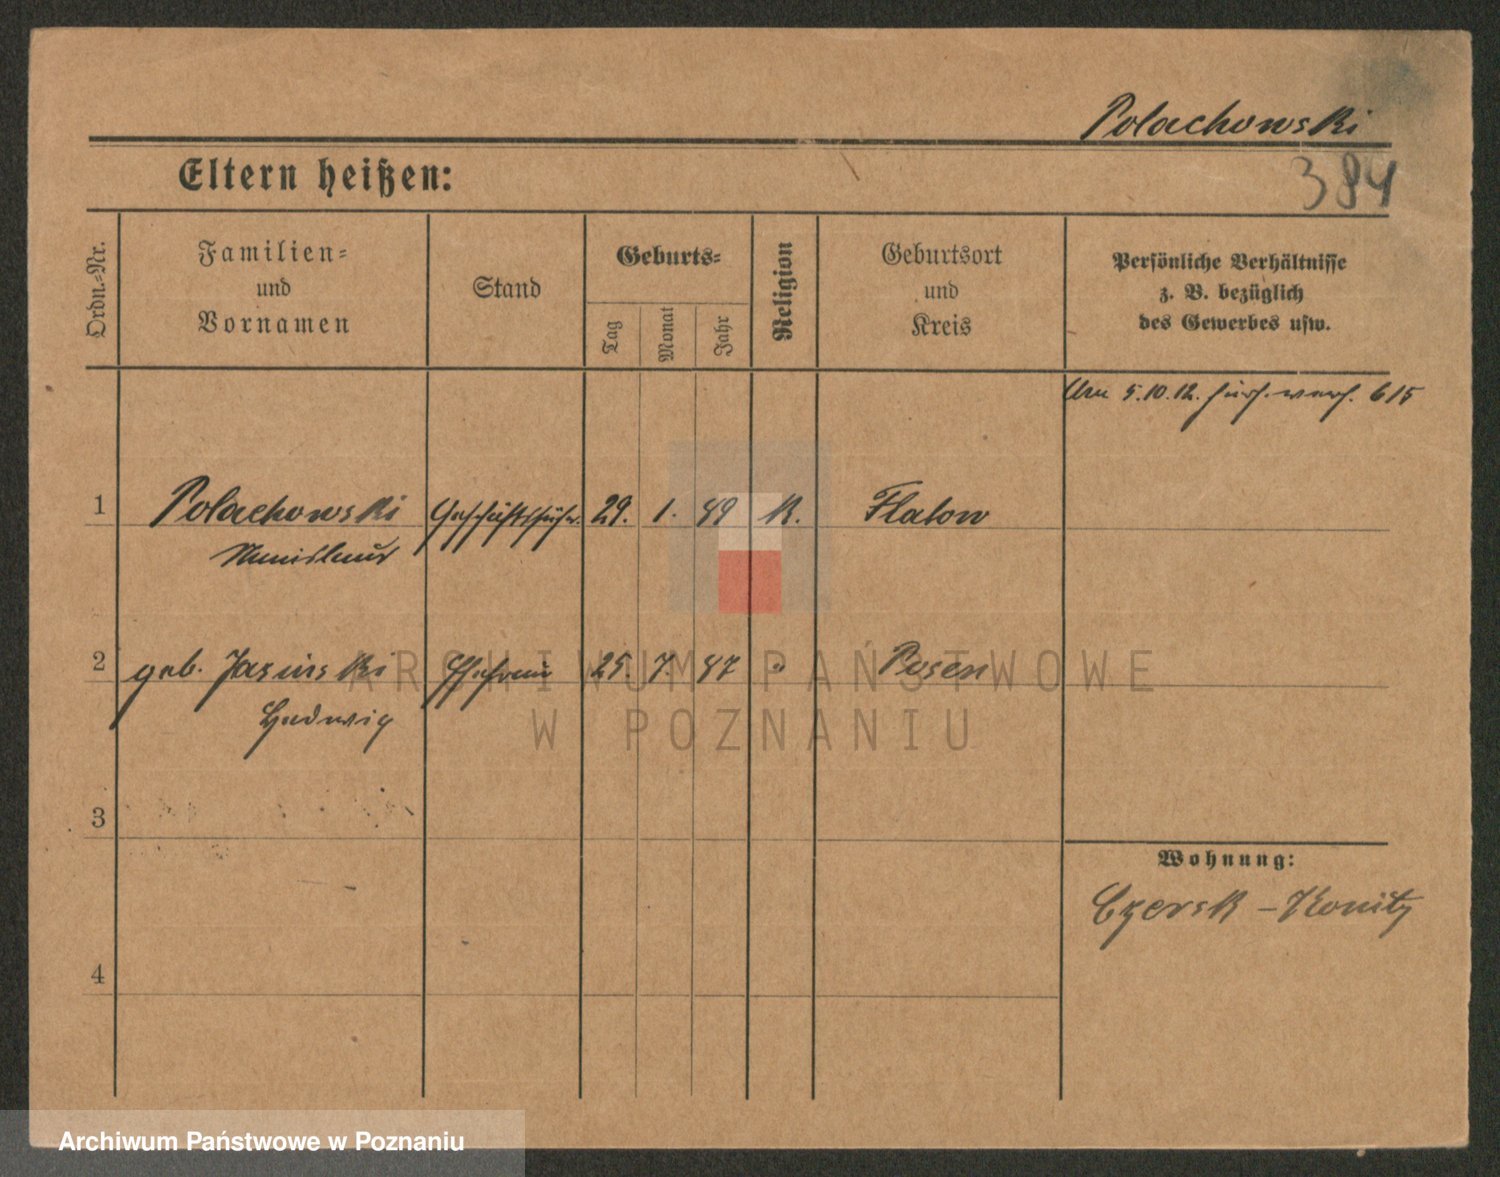 Polachowski
384
Eltern heißen:
Ordn.-Nr.
Familien-
und
Vornamen
Stand
Geburts-
Tag
Monat
Jahr
Religion
Geburtsort
und
Kreis
Persönliche Verhältnisse
z. B. bezüglich
des Gewerbes usw.
5.10.12. 615
1 Polachowski Geschäftsführ. 29. 1. 89 K. Flatow
2 geb. Jasinski Ehefrau 25. 7. 87 Posen
Hedwig
3
4
Wohnung:
Czersk - Konitz
ARCHIWUM PAŃSTWOWE
W POZNANIU
Archiwum Państwowe w Poznaniu